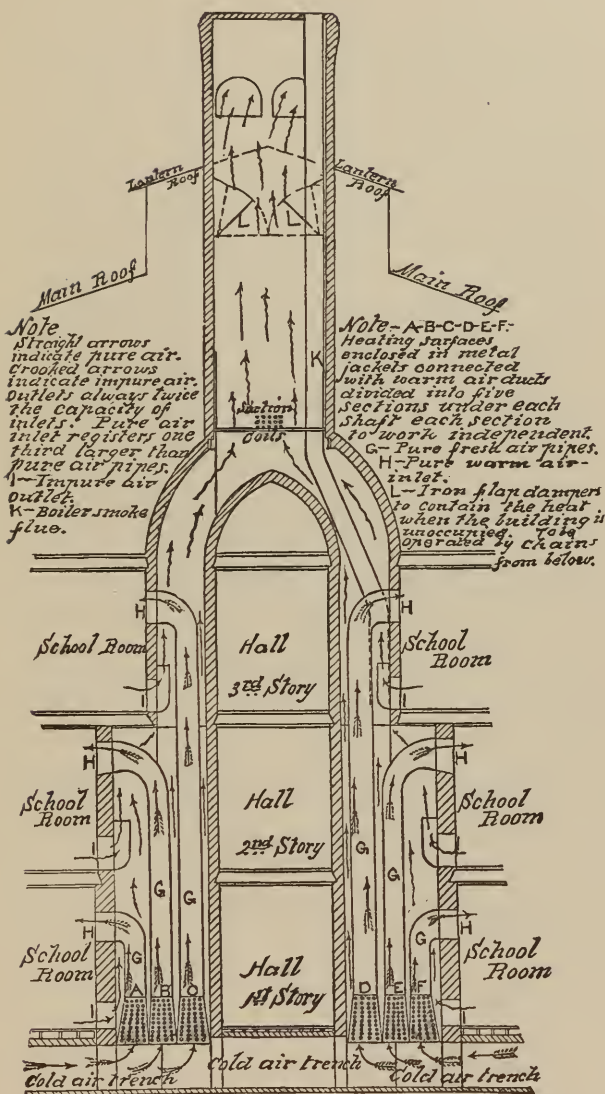 Lantern
Roof
Lantern
Roof
L
L
Main Roof
Main Roof
K
Note
Straight arrows
indicate pure air.
Crooked arrows
indicate impure air.
Outlets always twice
the capacity of
inlets. Pure air
inlet registers one
third larger than
pure air pipes.
I-Impure air
outlet.
K-Boiler smoke
flue.
Note-A-B-C-D-E-F-
Heating surfaces
enclosed in metal
jackets connected
with warm air ducts
divided into five
sections under each
shaft each section
to work independent.
G-Pure fresh air pipes.
H-Pure warm air-
inlet.
L-Iron flap dampers
to contain the heat
when the building is
unoccupied. To be
operated by chains
from below.
Suction
Coils
H
H
School Room
Hall
3rd Story
School
Room
I
I
H
H
School
Room
Hall
2nd Story
School
Room
I
I
G
G
G
G
H
H
School
Room
G
Hall
1st Story
G
School
Room
A
B
C
D
E
F
I
I
Cold air trench
Cold air trench
Cold air trench